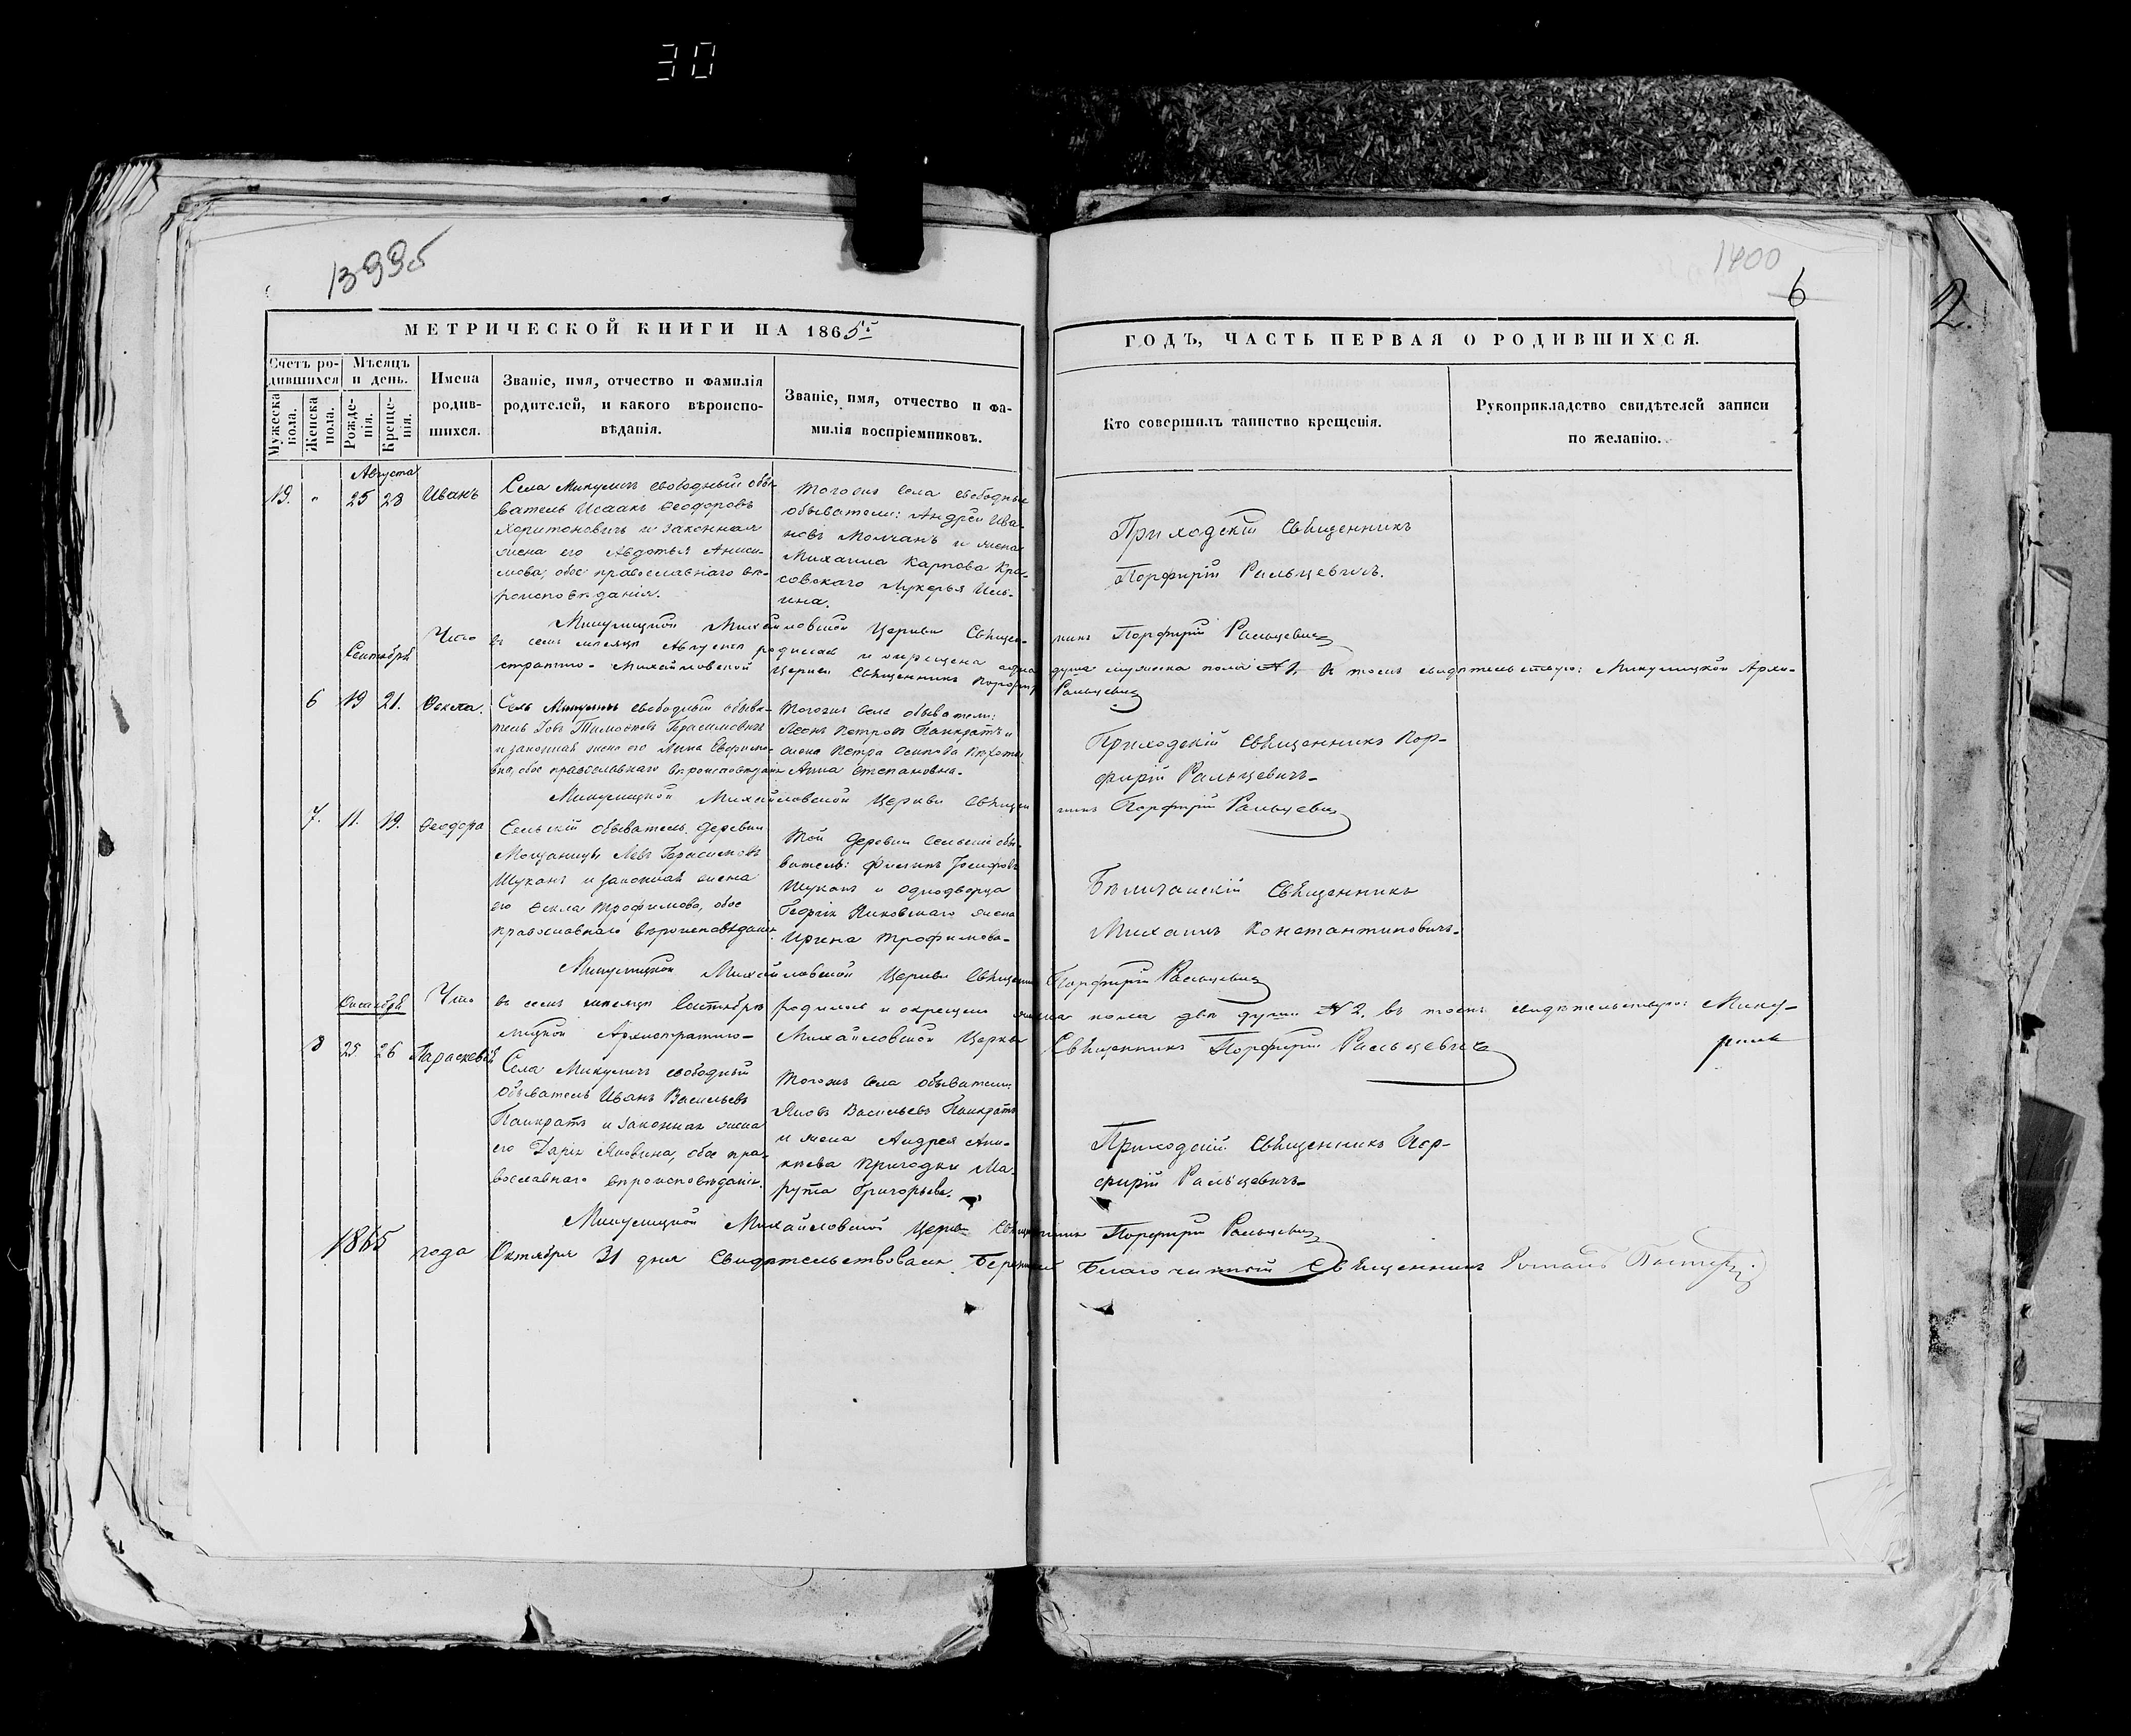 30
1399б
1400
6
2.
МЕТРИЧЕСКОЙ КНИГИ НА 1865й
ГОДЪ, ЧАСТЬ ПЕРВАЯ О РОДИВШИХСЯ.
Счетъ ро-
дившихся
Мужеска
пола.
Женска
пола.
Мѣсяцъ
и день.
Рожде-
нія.
Креще-
нія.
Имена
родив-
шихся.
Званіе, имя, отчество и фамилія
родителей, и какого вѣроиспо-
вѣданія.
Званіе, имя, отчество и фа-
милія воспріемниковъ.
Кто совершилъ таинство крещенія.
Рукоприкладство свидѣтелей записи
по желанію.
Августа
19. " 25 28 Иванъ
Села Микуличъ свободный обы-
ватель Исаакъ Ѳеодоровъ
Харитоновичъ и законная
жена его Авдотья Аниси-
мова, обое православнаго вѣ-
роисповѣданія.
Тогожъ села свободные
обыватели: Андрей Ива-
новъ Молчанъ и жена
Михаила Карпова Кра-
совскаго Лукерья Иль-
ина.
Приходскій Священникъ
Порфирій Ральцевичъ.
Микулицкой Михайловской Церкви Священникъ Порфирій Ральцевичъ
Что въ семъ месяце Августѣ родилась и окрещена одна душа мужеска пола № 1. въ томъ свидѣтельствую: Микулицкой Архи-
стратиго-Михайловской Церкви Священникъ Порфирій Ральцевичъ
Сентябрь
6 19 21. Ѳекла.
Села Микуличъ свободный обыва-
тель Іовъ Тимоѳеевъ Герасимовичъ
и законная жена его Анна
обое православнаго вѣроисповѣданія
Тогожъ села обыватели:
Леонъ Петровъ Панкратъ и
жена Петра Осипова
Анна Степановна.
Приходскій Священникъ Пор-
фирій Ральцевичъ.
Микулицкой Михайловской Церкви Священникъ Порфирій Ральцевичъ
7. 11. 19. Ѳеодора
Сельскій обыватель деревни
Мощаницы Левъ Герасимовъ
Шуканъ и законная жена
его Ѳекла Трофимова, обое
православнаго вѣроисповѣданія.
Той деревни сельскій обы-
ватель: Филипъ Іосифовъ
Шуканъ и однодворца
Георгія жена
Ирина Трофимова.
Бѣличанскій Священникъ
Михаилъ Константиновичъ.
Микулицкой Михайловской Церкви Священникъ Порфирій Ральцевичъ
Что въ семъ месяце Сентябрѣ родилось и окрещено женска пола двѣ души № 2. въ томъ свидѣтельствую: Мику-
лицкой Архистратиго-Михайловской Церкви Священникъ Порфирій Ральцевичъ
Октябрь
8 25 26 Параскевія
Села Микуличъ свободный
обыватель Иванъ Васильевъ
Панкратъ и законная жена
его Дарія Яковина, обое пра-
вославнаго вѣроисповѣданія.
Тогожъ села обыватели
Яковъ Васильевъ Панкратъ
и жена Андрея Ани-
киева Пригодки Ма-
рута Григорьева.
Приходскій Священникъ Пор-
фирій Ральцевичъ.
Микулицкой Михайловской Церкви Священникъ Порфирій Ральцевичъ
1865 года Октября 31 дня Свидѣтельствовалъ Благочинный Священникъ Романъ